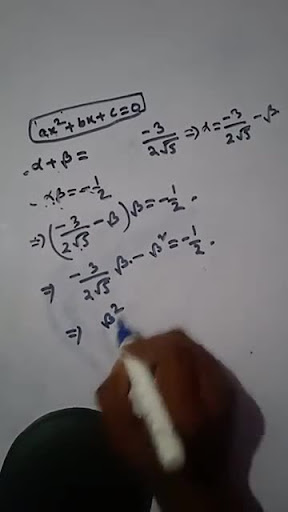 ax² + bx + c = 0
α + β = -3/2√5 ⇒ α = -3/2√5 - β
αβ = -1/2
⇒ (-3/2√5 - β) β = -1/2.
⇒ -3/2√5 β - β² = -1/2.
⇒ β²